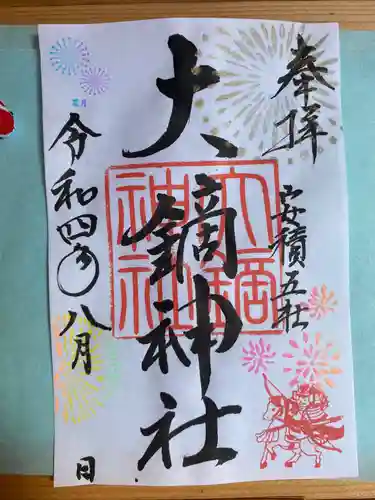 奉拝
安積五社
大鏑神社
大鏑神社
令和四年八月 日
葉月